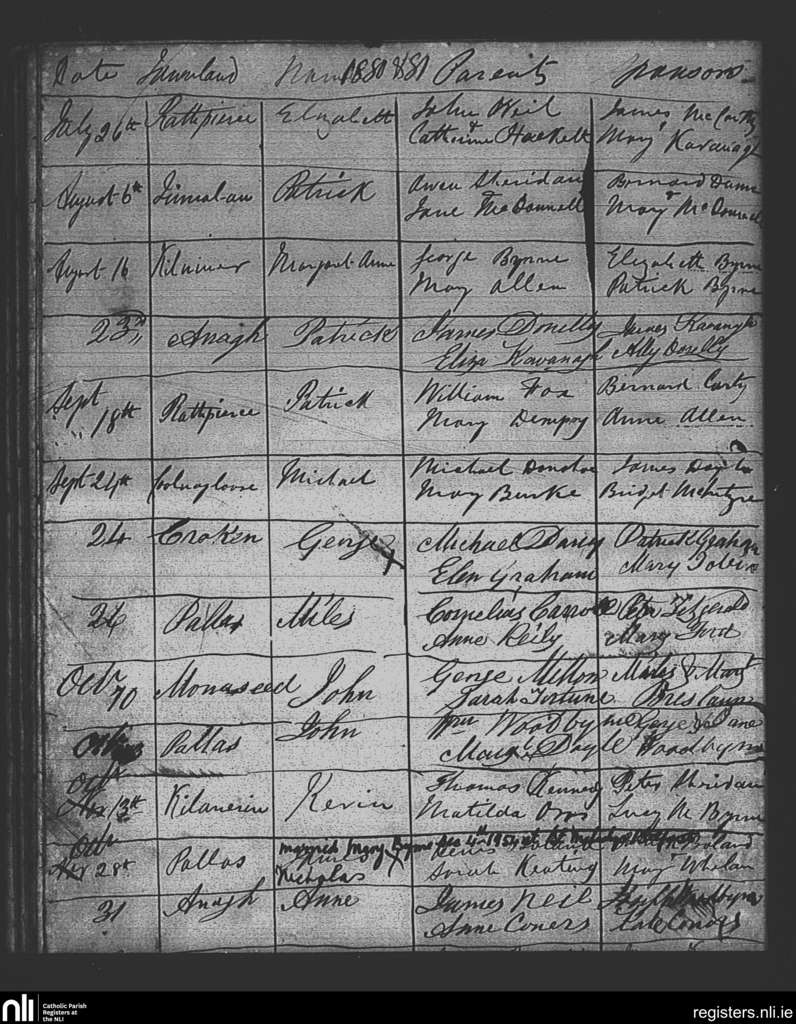 Date Townland Name 1880 & 81 Parents Sponsors
July 26th Rathpierce Elizabeth John Neil James McCarthy
& Catherine Hackett Mary Kavanagh
August 6th Patrick Owen Sheridan Bernard
& Jane McDonnell & Mary McDonnell
August 16 Margaret Anne George Byrne Elizabeth Byrne
Mary Allen Patrick Byrne
23rd Anagh Patrick James Donelly James Kavanagh
Eliza Kavanagh Ally Donelly
Sept 18th Rathpierce Patrick William Fox Bernard Carty
Mary Dempsy Anne Allen
Sept 24th Michael Michael Donohoe James
Mary Burke Bridget McIntyre
24 Croken George Michael Darcy Patrick Graham
Elen Graham Mary Tobin
26 Pallas Miles Cornelius Carroll Peter Fitzgerald
Anne Reily Mary
Octr 10 Monaseed John George Miles & Mary
Sarah Fortune
Pallas John Wm Woodbyrne George & Jane
Mary Doyle Woodbyrne
Octr 13th Kilanerin Kevin Thomas Kennedy Peter Sheridan
Matilda Lucy M Byrne
married Mary Byrne 4th 1954 at
Octr 28th Pallas Boland
Nicholas Sarah Keating Mary Whelan
31 Anagh Anne James Neil
Anne Coners Kate Conors
nli Catholic Parish
Registers at
the NLI
registers.nli.ie